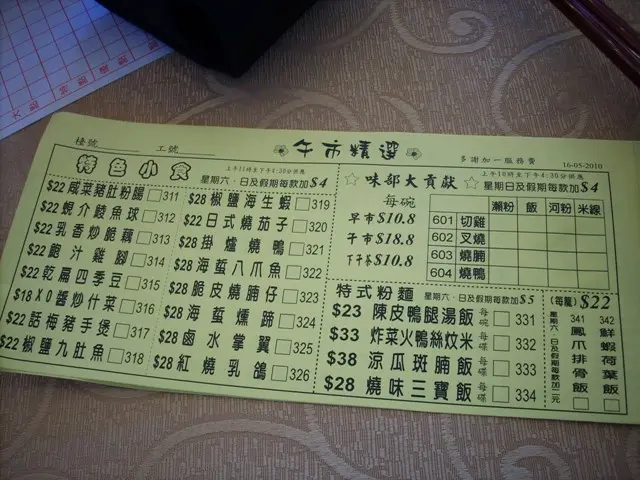 檯號 工號
午市精選
多謝加一服務費 16-05-2010
特色小食
上午11時至下午4:30分供應
星期六、日及假期每款加$4
$22 咸菜豬肚粉腸 311
$22 蜆介鯪魚球 312
$22 乳香炒脆藕 313
$22 鮑汁雞腳 314
$22 乾扁四季豆 315
$18 XO醬炒什菜 316
$22 話梅豬手煲 317
$22 椒鹽九肚魚 318
$28 椒鹽海生蝦 319
$22 日式燒茄子 320
$28 掛爐燒鴨 321
$28 海蜇八爪魚 322
$28 脆皮燒腩仔 323
$28 海蜇燻蹄 324
$28 鹵水掌翼 325
$28 紅燒乳鴿 326
味部大貢獻
星期日及假期每款加$4
每碗
早市$10.8
午市$18.8
下午茶$10.8
瀨粉 飯 河粉 米線
601 切雞
602 叉燒
603 燒腩
604 燒鴨
特式粉麵 星期六、日及假期每款加$5
$23 陳皮鴨腿湯飯 每碗 331
$33 炸菜火鴨絲炆米 每碟 332
$38 涼瓜斑腩飯 每碟 333
$28 燒味三寶飯 每碟 334
(每籠) $22
星期六、日及假期每款加二元
341 鳳爪排骨飯
342 鮮蝦荷葉飯